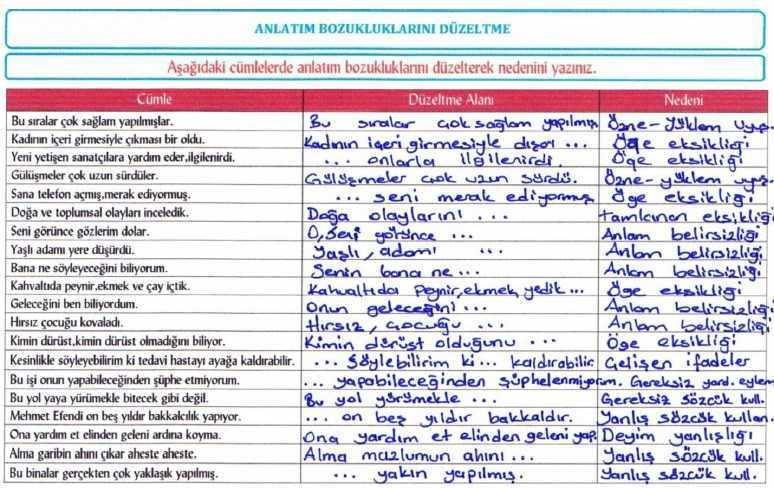 ANLATIM BOZUKLUKLARINI DÜZELTME
Aşağıdaki cümlelerde anlatım bozukluklarını düzelterek nedenini yazınız.
Cümle Düzeltme Alanı Nedeni
Bu sıralar çok sağlam yapılmışlar. Bu sıralar çok sağlam yapılmış Özne-Yüklem uyuş.
Kadının içeri girmesiyle çıkması bir oldu. Kadının içeri girmesiyle dışarı ... Öge eksikliği
Yeni yetişen sanatçılara yardım eder,ilgilenirdi. ... onlarla ilgilenirdi. Öge eksikliği
Gülüşmeler çok uzun sürdüler. Gülüşmeler çok uzun sürdü. Özne-yüklem uyuş.
Sana telefon açmış,merak ediyormuş. ... seni merak ediyormuş Öge eksikliği
Doğa ve toplumsal olayları inceledik. Doğa olaylarını ... tamlanan eksikliği
Seni görünce gözlerim dolar. O, seni görünce ... Anlam belirsizliği
Yaşlı adamı yere düşürdü. Yaşlı, adamı ... Anlam belirsizliği
Bana ne söyleyeceğini biliyorum. Senin bana ne ... Anlam belirsizliği
Kahvaltıda peynir,ekmek ve çay içtik. Kahvaltıda peynir,ekmek yedik ... Öge eksikliği
Geleceğini ben biliyordum. Onun geleceğini ... Anlam belirsizliği
Hırsız çocuğu kovaladı. Hırsız, çocuğu ... Anlam belirsizliği
Kimin dürüst,kimin dürüst olmadığını biliyor. Kimin dürüst olduğunu ... Öge eksikliği
Kesinlikle söyleyebilirim ki tedavi hastayı ayağa kaldırabilir. ... söylebilirim ki ... kaldırabilir Gelişen ifadeler
Bu işi onun yapabileceğinden şüphe etmiyorum. ... yapabileceğinden şüphelenmiyorum. Gereksiz yard. eylem
Bu yol yaya yürümekle bitecek gibi değil. Bu yol yürümekle ... Gereksiz sözcük kull.
Mehmet Efendi on beş yıldır bakkalcılık yapıyor. ... on beş yıldır bakkaldır. Yanlış sözcük kullan.
Ona yardım et elinden geleni ardına koyma. Ona yardım et elinden geleni yap. Deyim yanlışlığı
Alma garibin ahını çıkar aheste aheste. Alma mazlumun ahını ... Yanlış sözcük kull.
Bu binalar gerçekten çok yaklaşık yapılmış. ... yakın yapılmış. Yanlış sözcük kull.